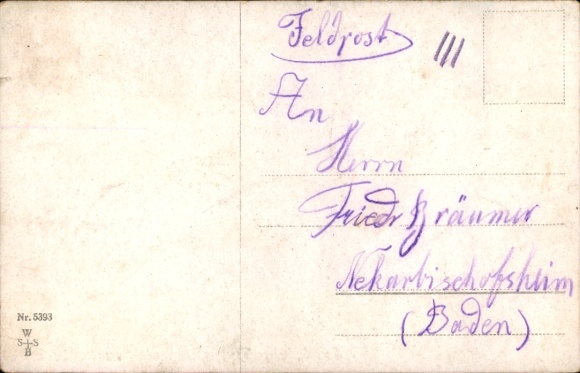 Feldpost
An
Herrn
Friedr Bräumer
Nekarbischofsheim
(Baden)
Nr. 5393
W
S S
B